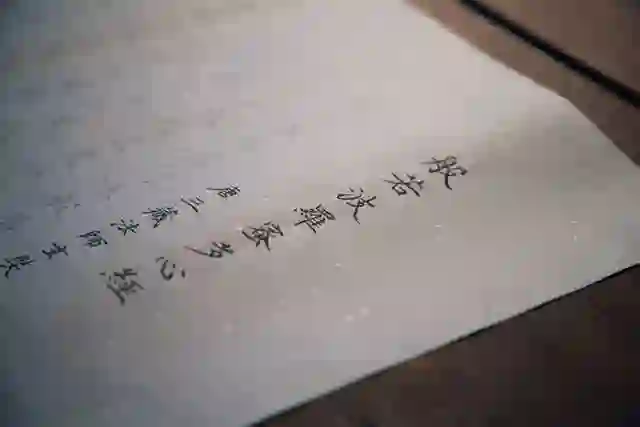 般若波羅蜜多心經
唐三藏法師玄奘